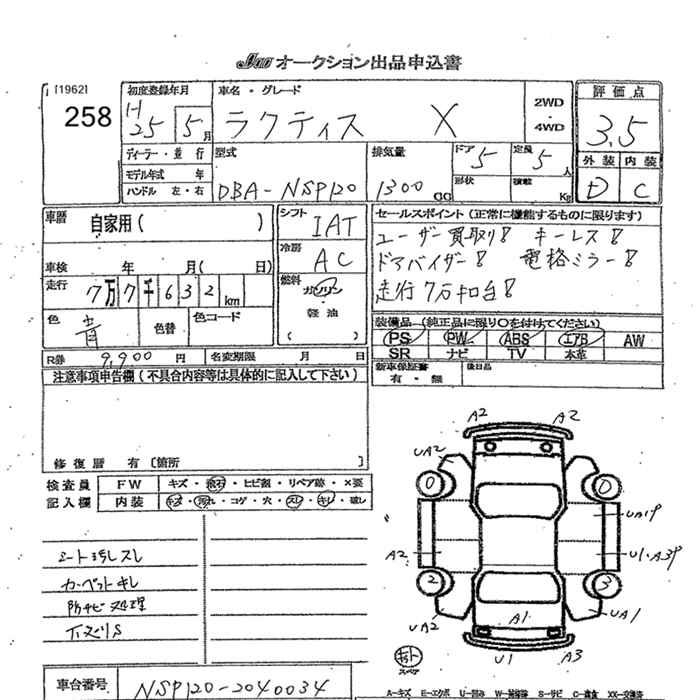 JAA オークション出品申込書
[1962]
258
初度登録年月
H 25 5月
車名・グレード
ラクティス X
2WD
・
4WD
評価点
3.5
ディーラー・並行
モデル年式 年
ハンドル 左・右
型式
DBA-NSP120
排気量
1300 CC
ドア 5
形状
定員 5人
積載 Kg
外装 内装
D C
車歴
自家用( )
シフト
IAT
冷房
AC
セールスポイント(正常に機能するものに限ります)
ユーザー買取り! キーレス!
ドアバイザー! 電格ミラー!
走行7万キロ台!
車検 年 月( 日)
走行 7万7千632km
燃料
ガソリン
・
軽油
( )
色 青
色替
色コード
装備品(純正品に限り○を付けてください)
PS PW ABS エアB AW
SR ナビ TV 本革
R券 9,900円
名変期限 月 日
新車保証書
有・無
後日品
注意事項申告欄(不具合内容等は具体的に記入して下さい)
修復歴 有〔箇所 〕
検査員
記入欄
FW キズ・飛石・ヒビ割・リペア跡・×要
内装 キズ・汚れ・コゲ・穴・スレ・キレ・破レ
シート汚レスレ
カーペットキレ
防サビ処理
下ズリS
A2 A2
UA2
0 0
UA1P
A2 U1・A3P
2 3
A1
UA2 UA1
U1 A3
スペア
車台番号 NSP120-2040034
A-キズ E-エクボ U-凹み W-補修跡 S-サビ C-腐食 XX-交換済